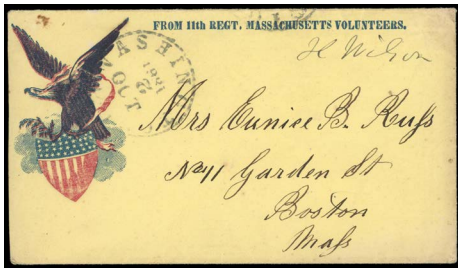 FROM 11th REGT. MASSACHUSETTS VOLUNTEERS.
H Wilson
WASHIN
OCT
2
1861
Mrs Eunice B. Russ
No 41 Garden St
Boston
Mass